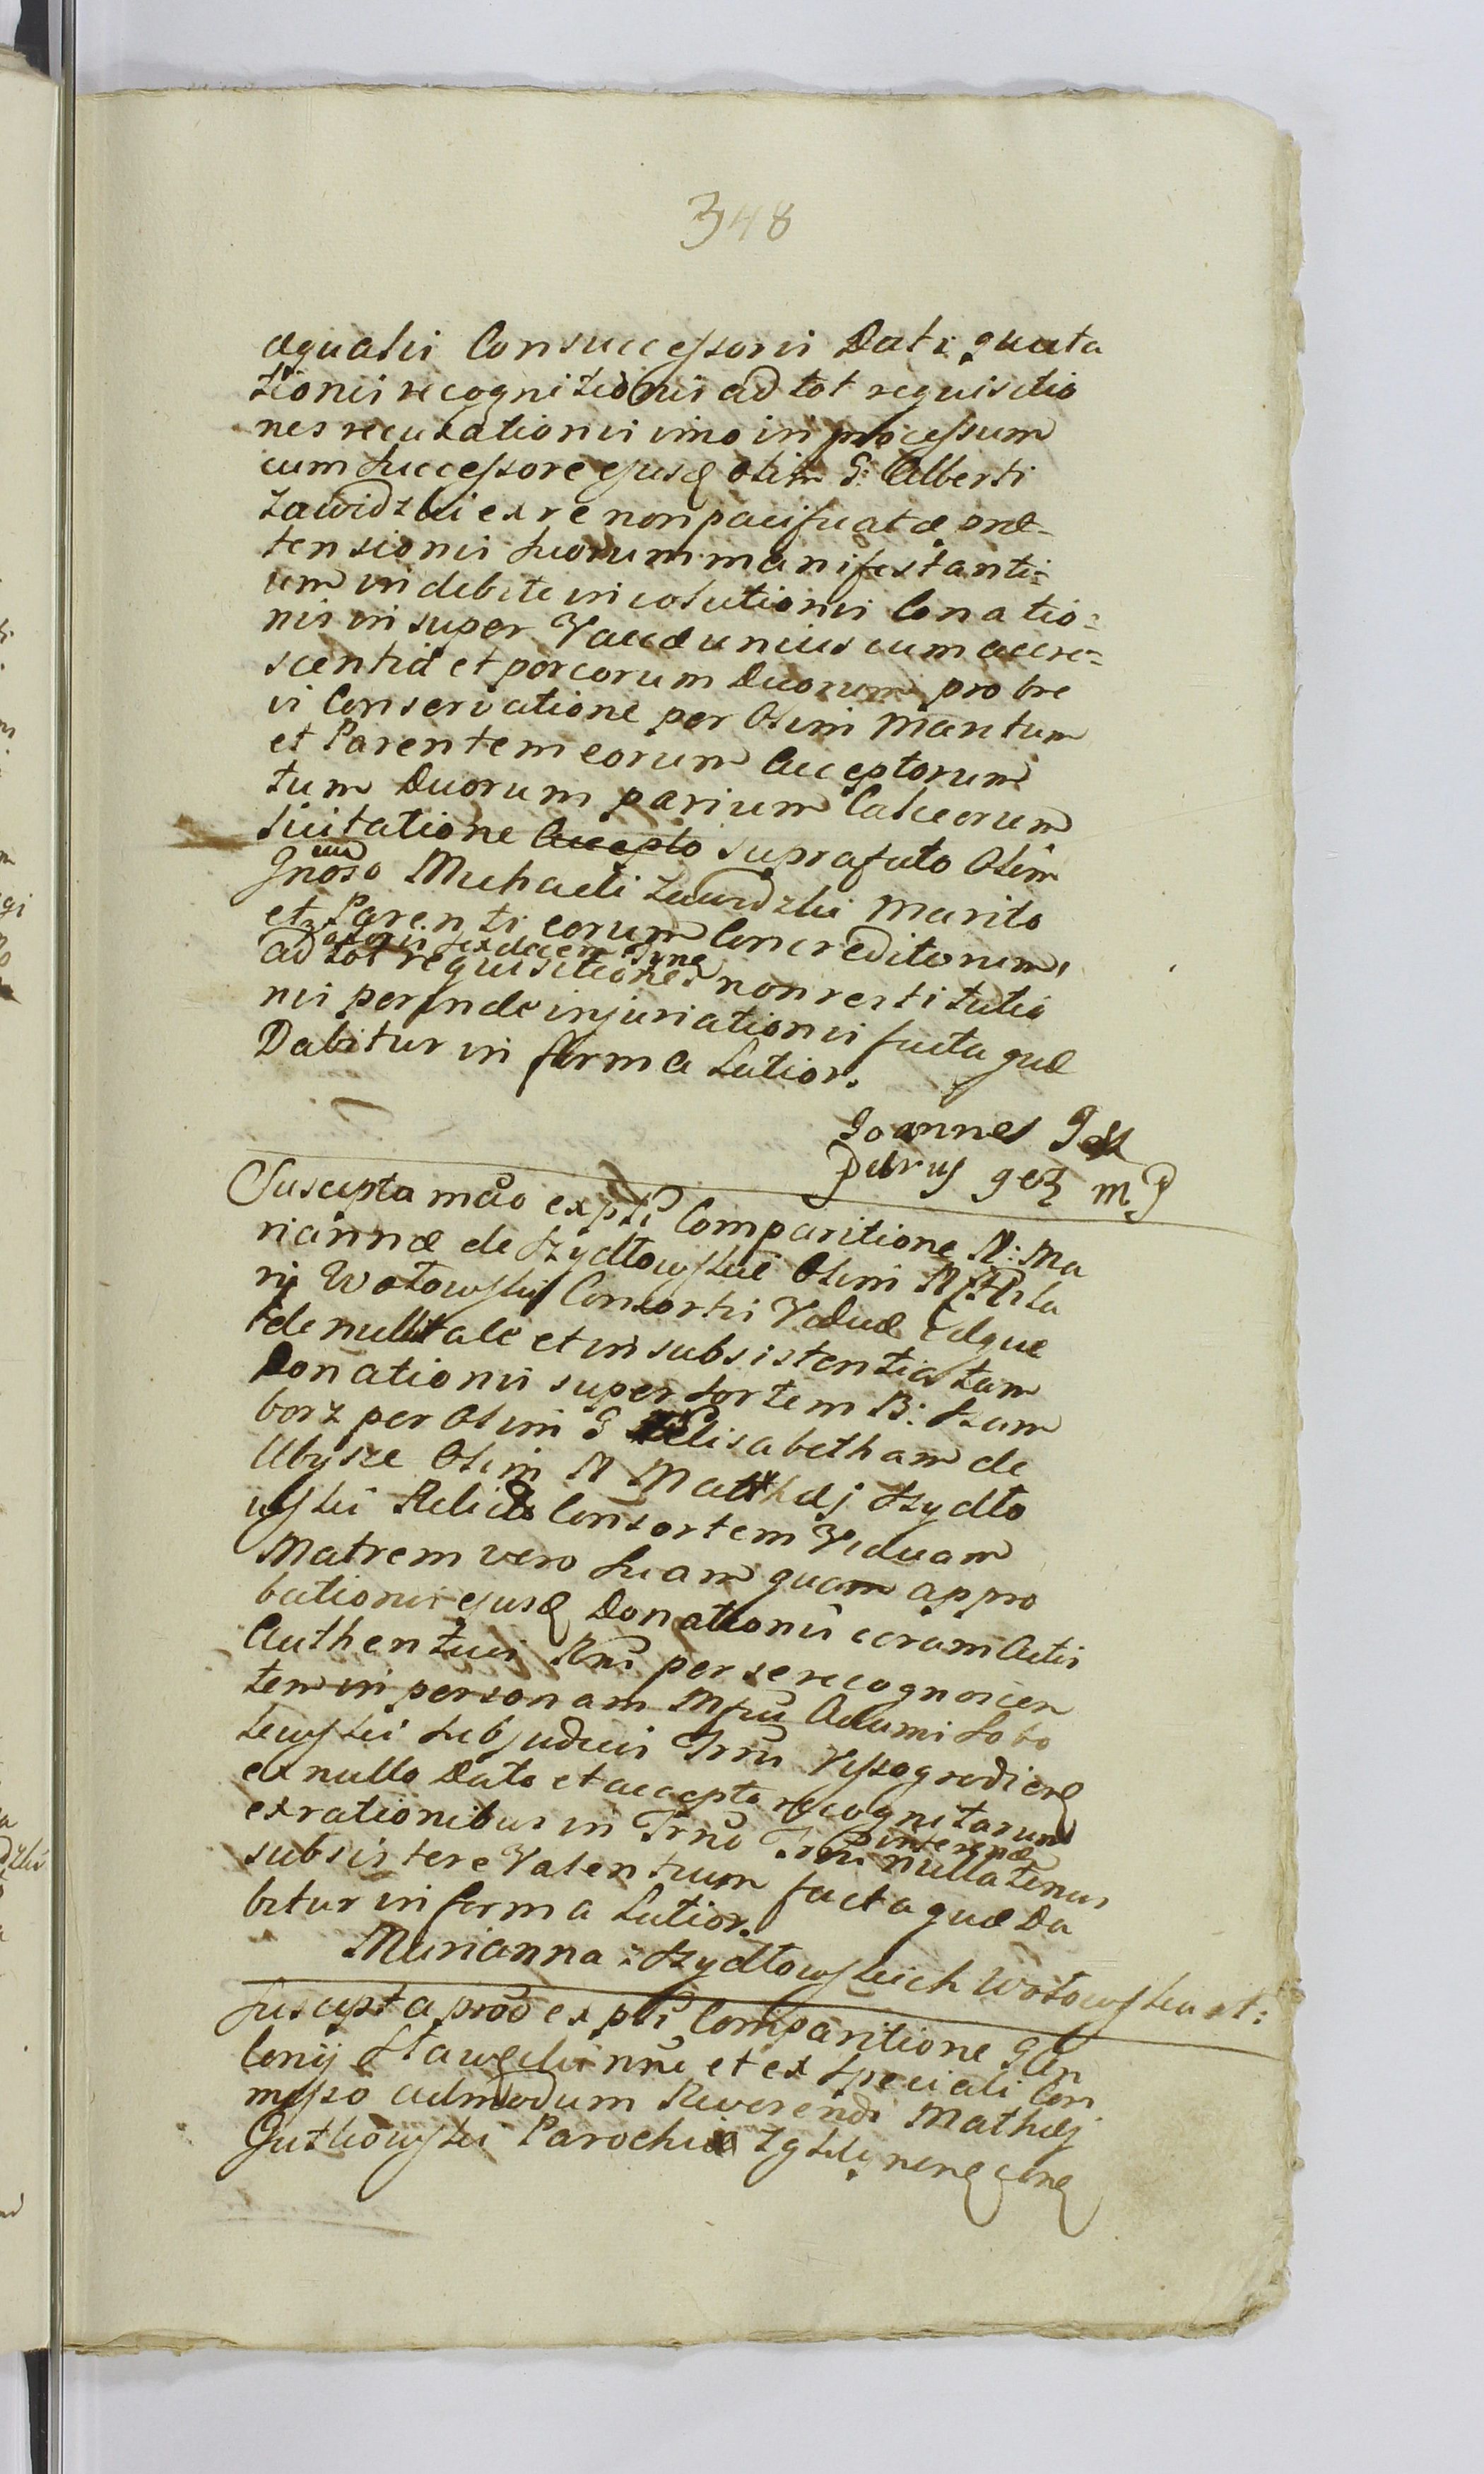 348
æqualis Consuccessoris Dati quieta
tionis recognitionis ad tot requisitio
nes recusationis imo in processum
cum Successore ejusd olim G: Alberti
Zawidzki ex re non pacificatæ præ-
tensionis suorum manifestanti=
um indebite incolutionis Conatio=
nis insuper Vaccæ unius cum accre=
scentia et porcorum Duorum pro bre
vi Conservatione per Olim Maritum
et Parentem eorum Acceptorum
tum Duorum parium Calceorum
licitatione Accepto suprafato Olim
Gnoso Michaeli Zawidzki Marito
et Parenti eorum Concreditorum,
florenis sexdecem
ad tot requisitiones non restitutio
nis perinde injuriationis facta quæ
Dabitur in forma Latior.
Joannes
Petrus mp
Suscepta mão ex pti Comparitione N: Ma
riannæ de Szydłowskie Olim N: Hila
rii Wołowski Consortis Viduæ Eaque
de nullitate et insubsistentia tam
Donationis super Sortem B: Szam
borz per Olim G Elisabetham de
Abysze Olim N Matthæj Szydło
wski Relictã Consortem Viduam
Matrem vero Suam quam appro
bationis ejusd Donationis coram Actis
Authenticis Rni per se recognoscen
tem in personam Mfci Adami Sobo
lewski Subjudicis Trrũ Vyssogrodien
ex nullo Dato et accepto recognitarum
ex rationibus in Trnõ Trri interend nullatenus
subsistere Valentium facta quæ Da
bitur in forma Latior.
Marianna z Szydłowskich Wołowska st:
Suscepta proõ ex pti Comparitione G An
tonij Stawski nne et ex Speciali Com
misso admodum Reverendi Mathæj
Gutkowski Parochiæ